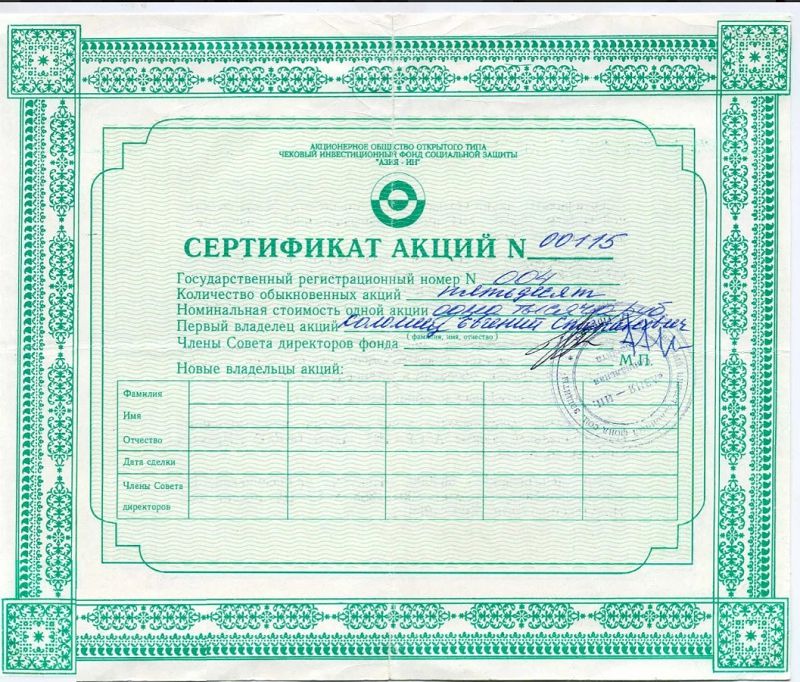 АКЦИОНЕРНОЕ ОБЩЕСТВО ОТКРЫТОГО ТИПА
ЧЕКОВЫЙ ИНВЕСТИЦИОННЫЙ ФОНД СОЦИАЛЬНОЙ ЗАЩИТЫ
"АЗИЯ - ИН"
СЕРТИФИКАТ АКЦИЙ N 00115
Государственный регистрационный номер N 004
Количество обыкновенных акций пятьдесят
Номинальная стоимость одной акции одна тысяча руб.
Первый владелец акций Коломиец Евгений
(фамилия, имя, отчество)
Члены Совета директоров фонда
М.П.
Новые владельцы акций:
Фамилия
Имя
Отчество
Дата сделки
Члены Совета
директоров